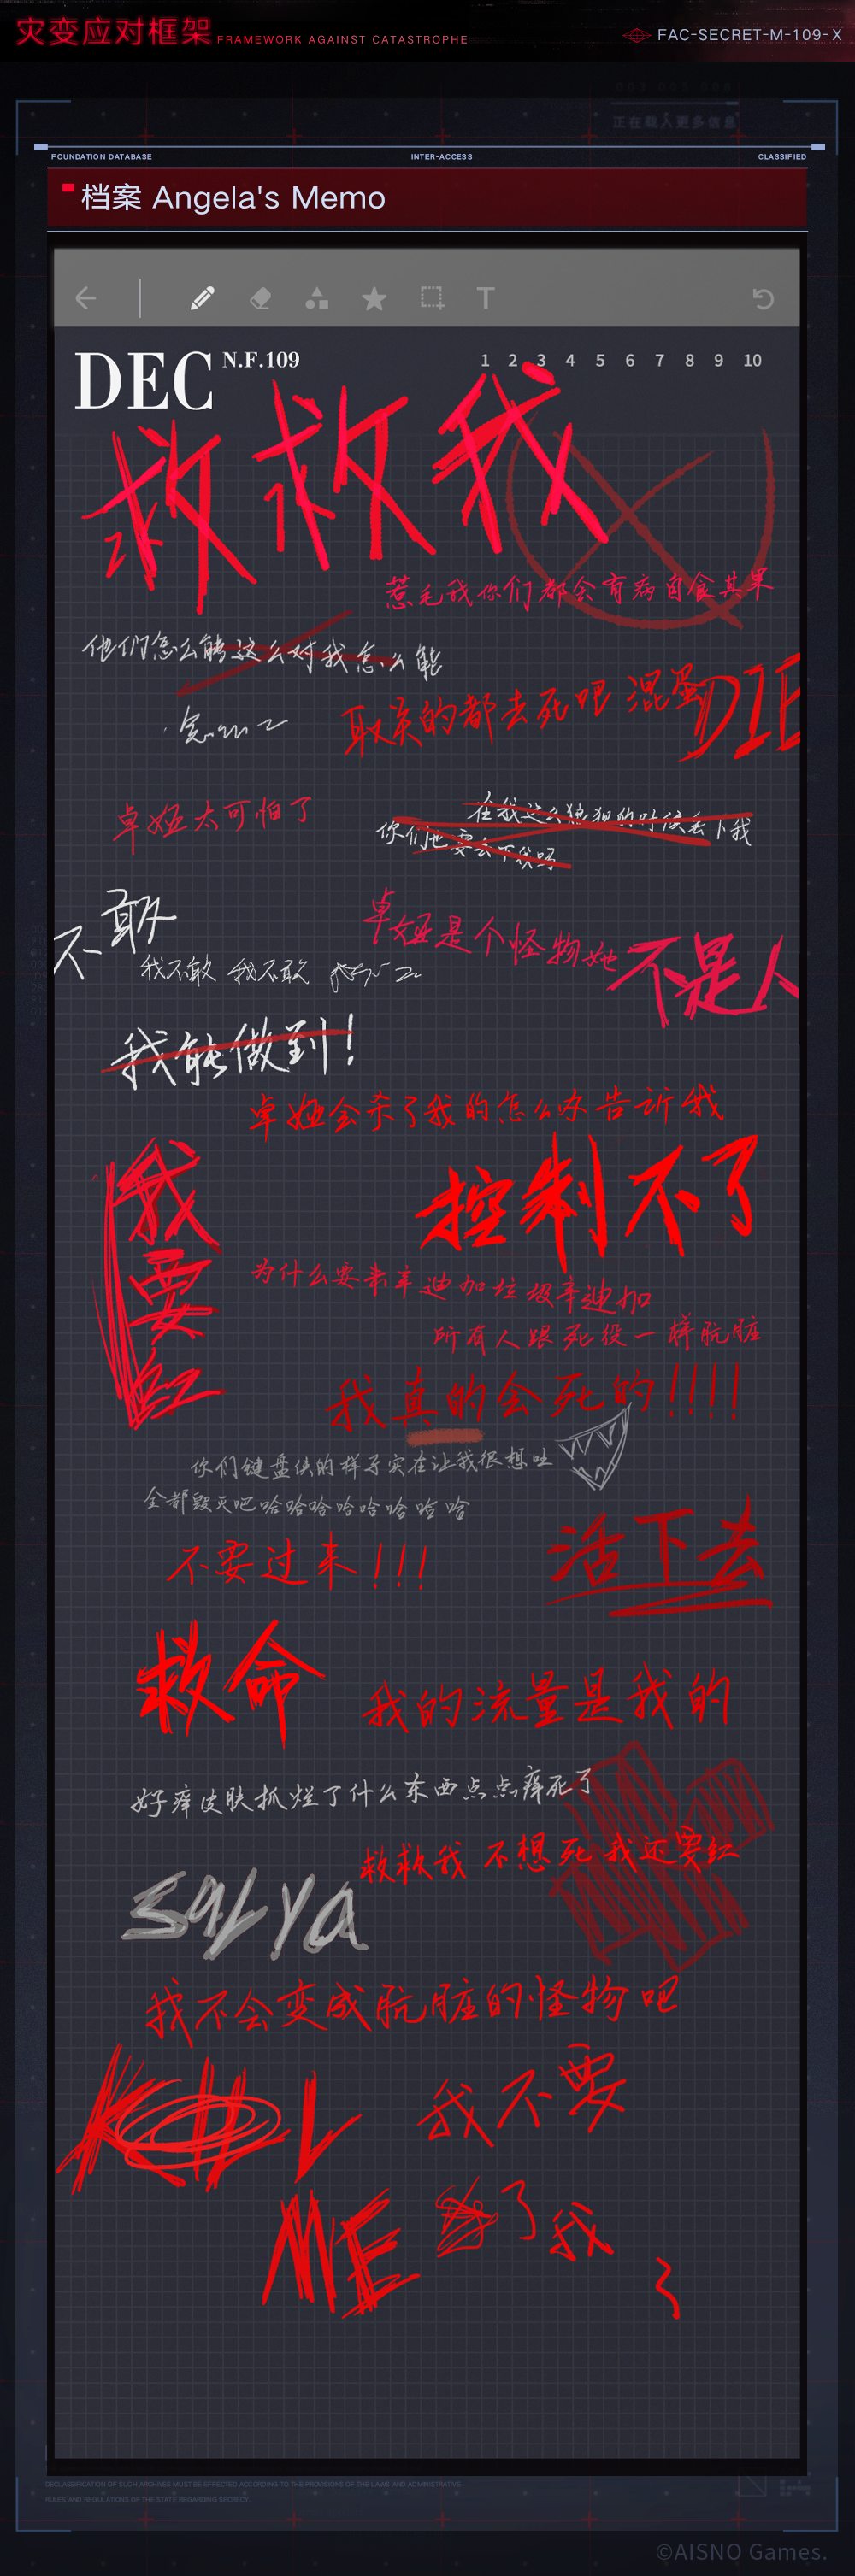 灾变应对框架 FRAMEWORK AGAINST CATASTROPHE
FAC-SECRET-M-109-X
正在载入更多信息
FOUNDATION DATABASE INTER-ACCESS CLASSIFIED
档案 Angela's Memo
T
DEC N.F.109
1 2 3 4 5 6 7 8 9 10
救救我
惹毛我你们都会有病自食其果
他们怎么能这么对我怎么能
取关的都去死吧 混蛋 DIE
卓娅太可怕了
在我这么狼狈的时候丢下我
你们也要丢下我吗
不敢
卓娅是个怪物她不是人
我不敢 我不敢
我能做到!
卓娅会杀了我的怎么办告诉我
我要红
控制不了
为什么要来辛迪加垃圾辛迪加
所有人跟死役一样肮脏
我真的会死的!!!!
你们键盘侠的样子实在让我很想吐
全都毁灭吧哈哈哈哈哈哈哈哈
不要过来!!!
活下去
救命
我的流量是我的
好痒皮肤抓烂了什么东西点点痒死了
救救我 不想死 我还要红
我不会变成肮脏的怪物吧
我不要
ME
了我
DECLASSIFICATION OF SUCH ARCHIVES MUST BE EFFECTED ACCORDING TO THE PROVISIONS OF THE LAWS AND ADMINISTRATIVE
RULES AND REGULATIONS OF THE STATE REGARDING SECRECY.
©AISNO Games.